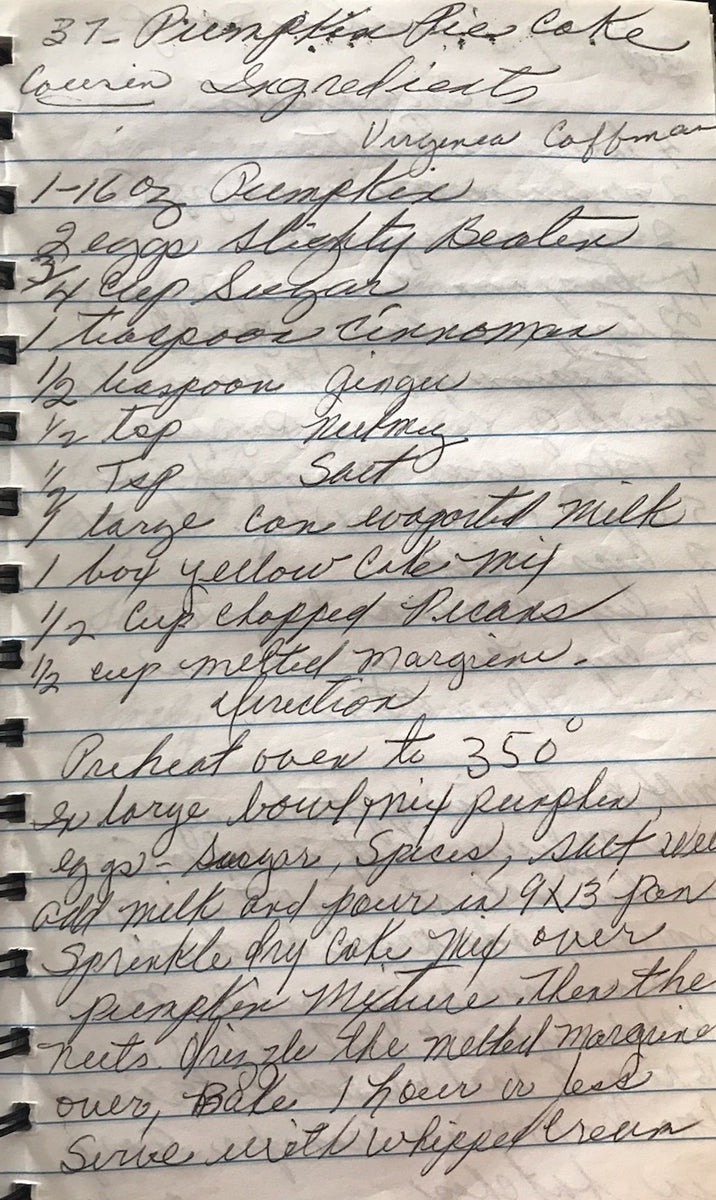 37- Pumpkin Pie Cake
Cousin Ingredients
Virginea Coffman
1-16 oz Pumpkin
2 eggs slighty Beaten
3/4 cup Sugar
1 teaspoon cinnoman
1/2 teaspoon ginger
1/2 tsp nutmeg
1/2 Tsp Salt
1 large can evaported Milk
1 box yellow Cake Mix
1/2 Cup chopped Pecans
1/2 cup melted margrine.
direction
Preheat oven to 350°
In large bowl, mix pumpkin,
eggs - sugar, Spices, salt well
add milk and pour in 9X13 pan
Sprinkle dry Cake Mix over
pumpkin Mixture. Then the
nuts. Drizzle the melted margrine
over, Bake 1 hour or less
Serve with whipped Cream